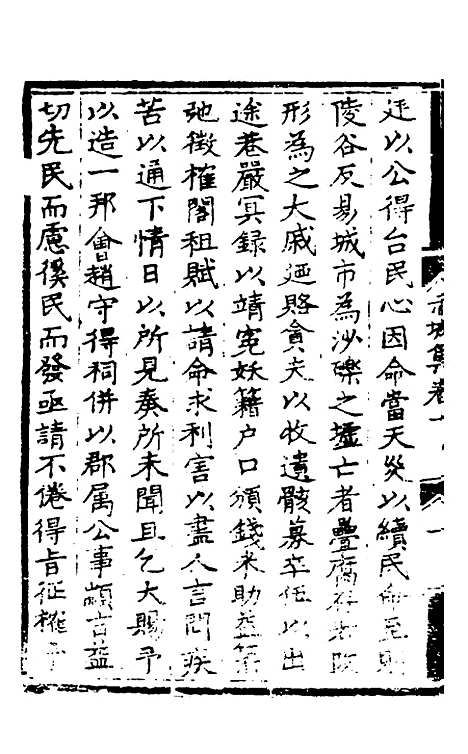 廷以公得台民心因命當天災以續民命至則
陵谷反易城市為沙礫之墟亡者疊腐存者
形為之大戚廼賂貪夫以收遺骸募卒伍以出
途巷嚴冥録以靖寃妖籍户口頒錢米助葢
弛徵榷閣租賦以請命求利害以盡人言問疾
苦以通下情日以所見奏所未聞且乞大賜予
以造一邦會趙守得祠併以郡属公事顓言益
切先民而慮徯民而發亟請不倦得旨征榷
赤城集卷十